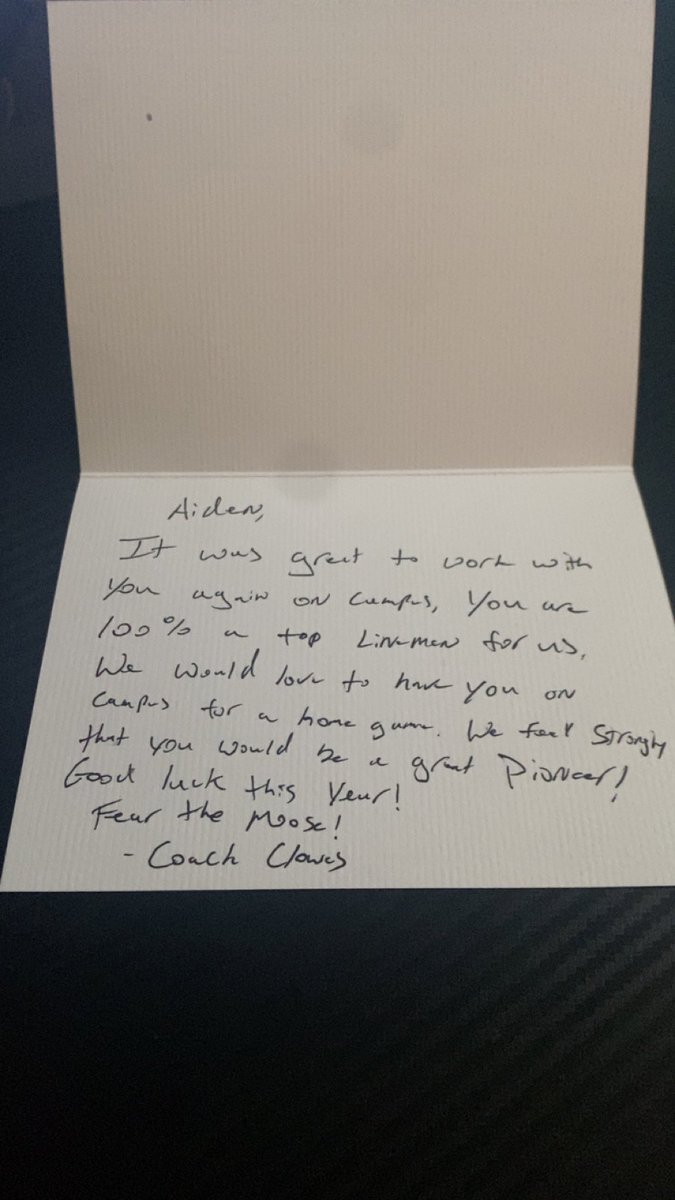 Aiden,
It was great to work with
you again on campus, You are
100% a top Linemen for us,
We would love to have you on
campus for a home game. We feel strongly
that you would be a great Pioneer!
Good luck this Year!
Fear the Moose!
- Coach Clowes